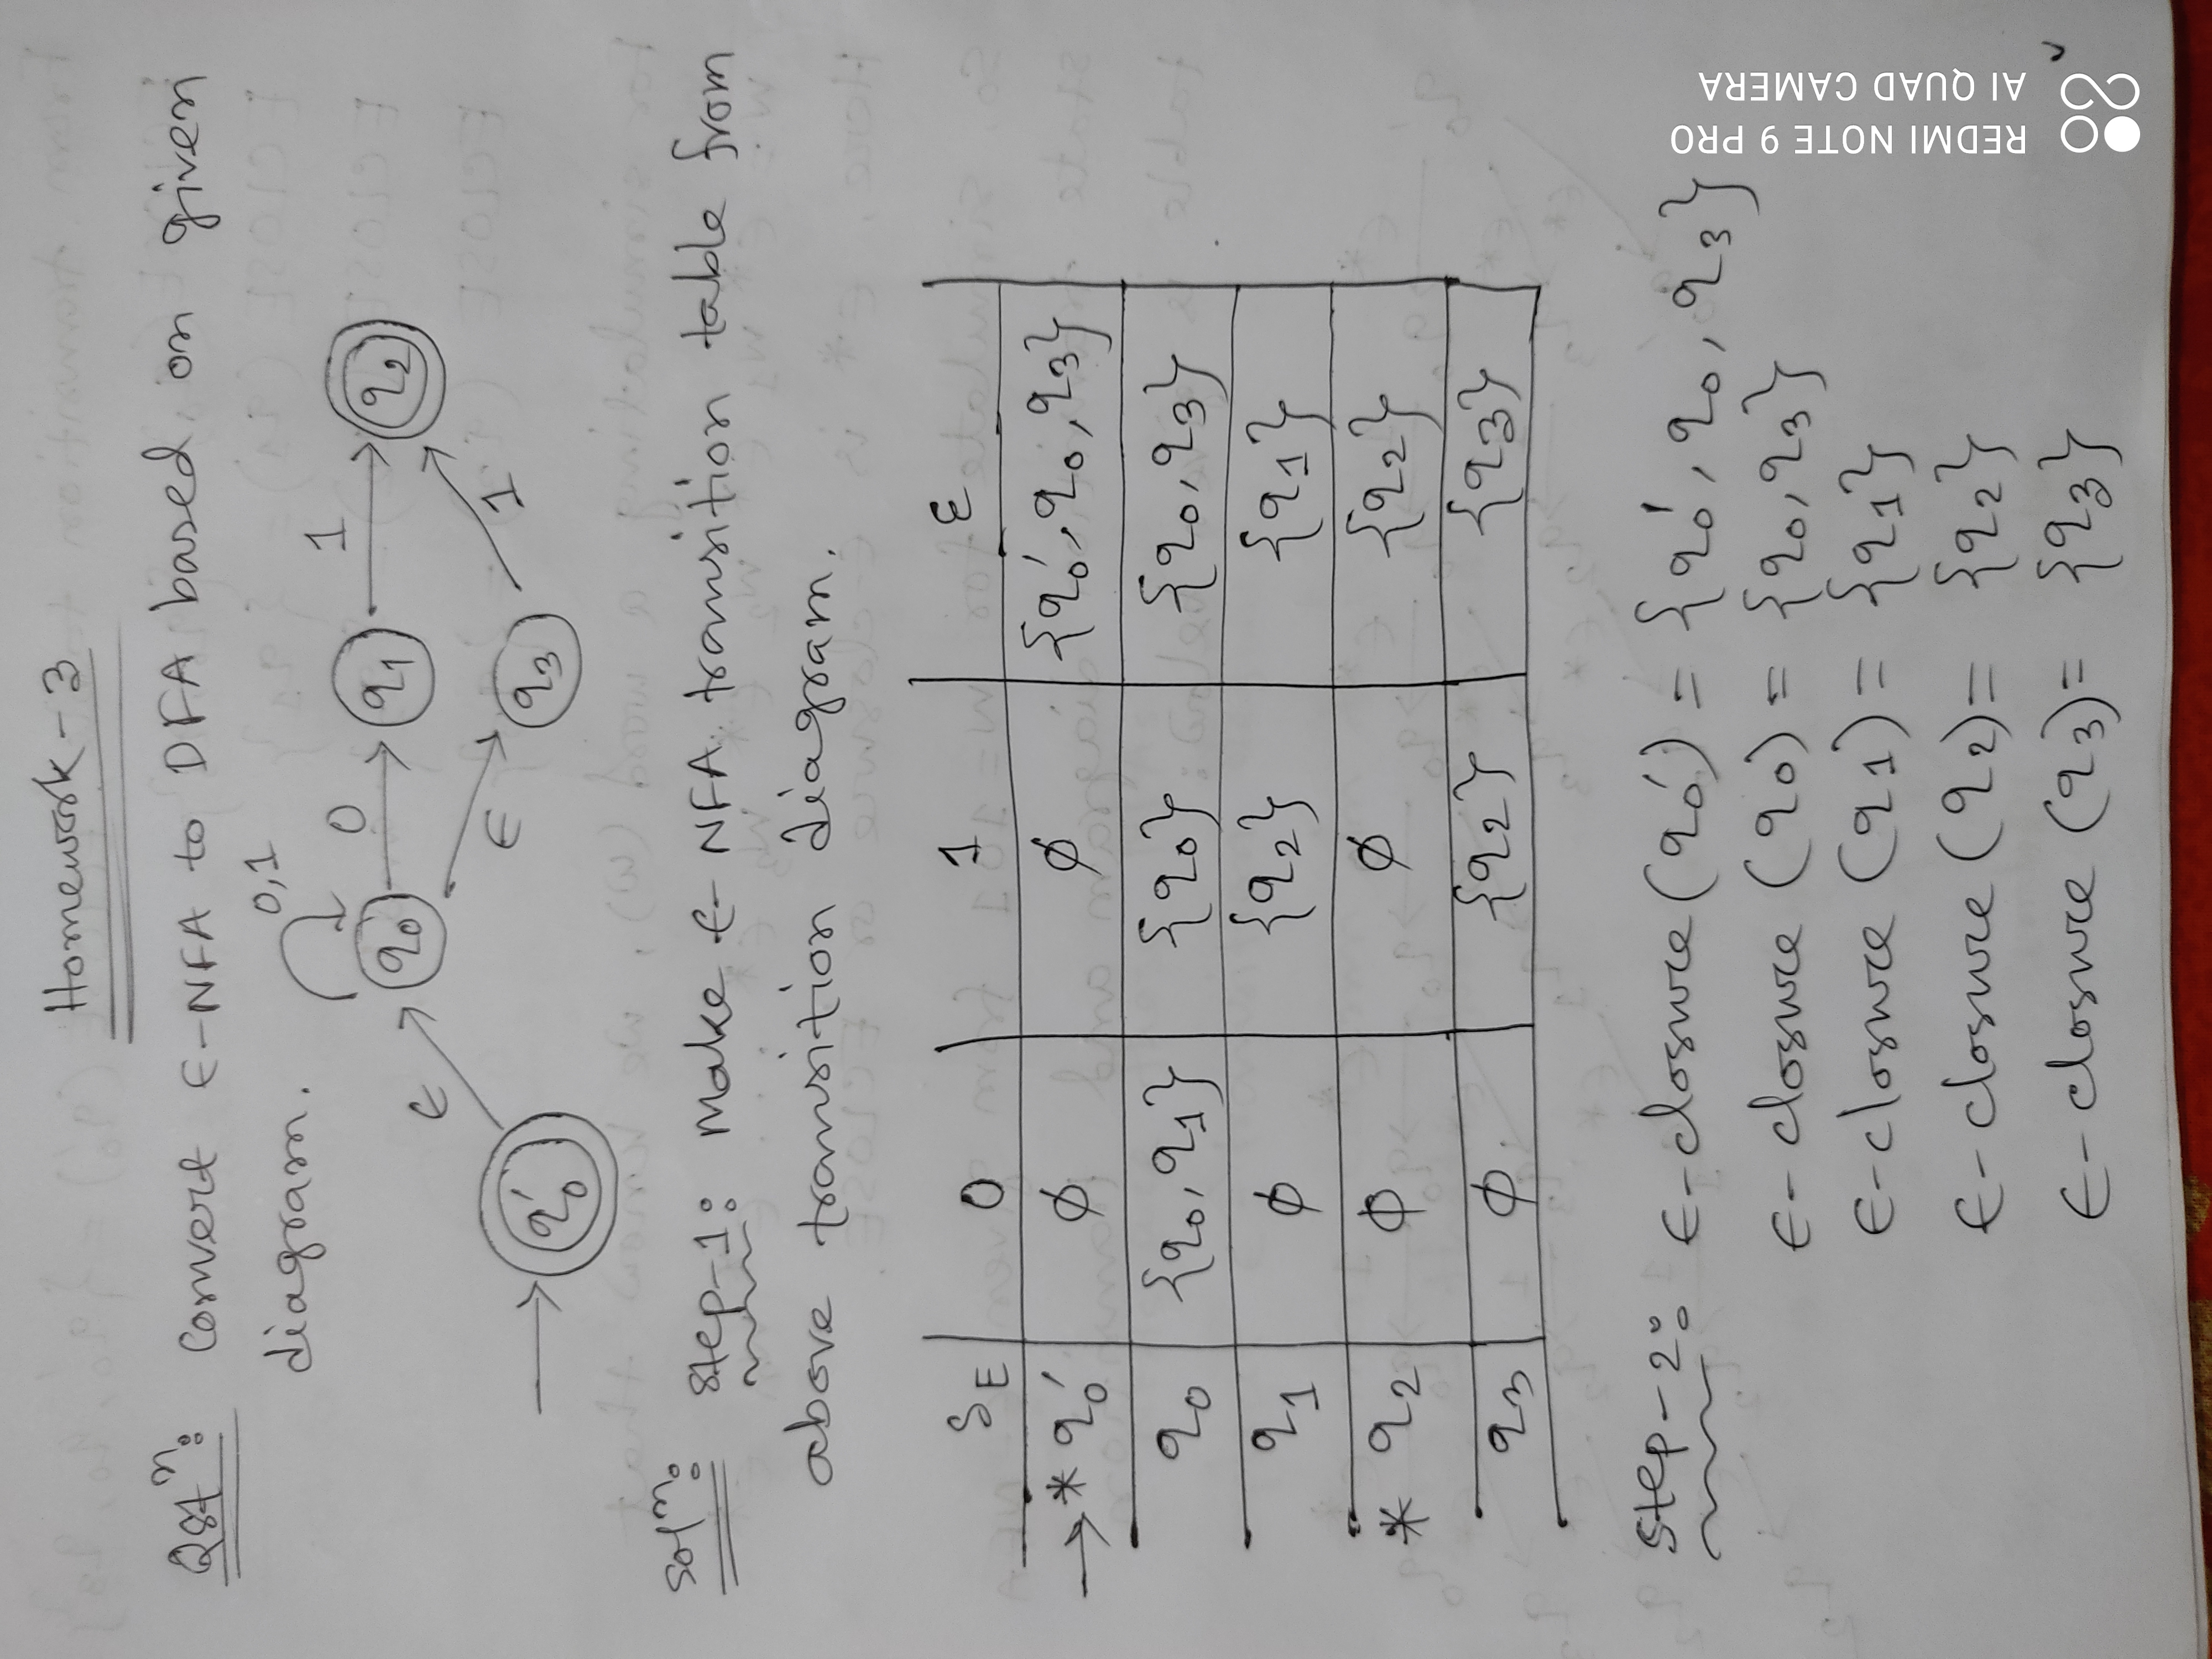 Homework - 3
Qstⁿ: Convert ϵ-NFA to DFA based on given
diagram.
0,1
0
1
q0
q1
q2
ϵ
ϵ
1
q0′
q3
Solⁿ: Step-1: Make ϵ- NFA transition table from
above transition diagram.
δE 0 1 ε
→ * q0′ ϕ ϕ {q0′, q0, q3}
q0 {q0, q1} {q0} {q0, q3}
q1 ϕ {q2} {q1}
* q2 ϕ ϕ {q2}
q3 ϕ {q2} {q3}
Step-2: ϵ-closure (q0′) = {q0′, q0, q3}
ϵ- closure (q0) = {q0, q3}
ϵ-closure (q1) = {q1}
ϵ- closure (q2) = {q2}
ϵ- closure (q3) = {q3}
REDMI NOTE 9 PRO
AI QUAD CAMERA